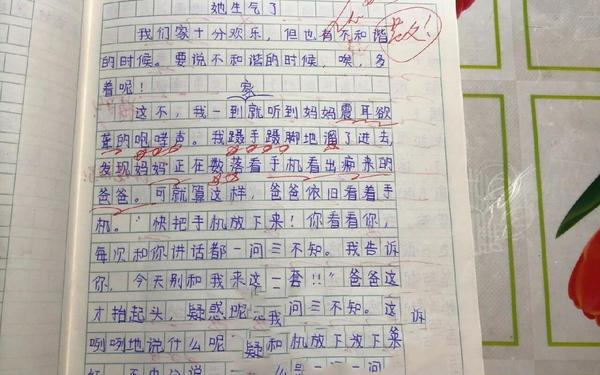 她生气了
我们家十分欢乐，但也有不和谐
的时候。要说不和谐的时候，唉，多
着呢！
家
这不，我一到就听到妈妈震耳欲
聋的咆哮声。我蹑手蹑脚地溜了进去，
发现妈妈正在数落看手机看出痛来的
爸爸。可就算这样，爸爸依旧看着手
机。“快把手机放下来！你看看你，
每次和你讲话都一问三不知。我告诉
你，今天别和我来这一套!!”爸爸这
才抬起头，疑惑呢 我 问三不知。这 诉
咧咧地说什么呢 疑和机放下放下